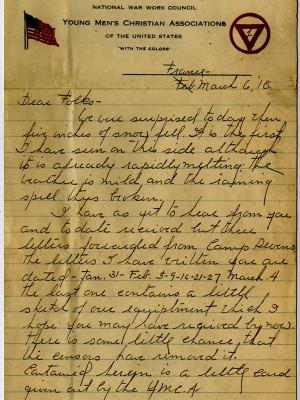 NATIONAL WAR WORK COUNCIL
YOUNG MEN'S CHRISTIAN ASSOCIATIONS
OF THE UNITED STATES
"WITH THE COLORS"
France -
March 6, '18
Dear Folks -
We were surprised today when
five inches of snow fell. It is the first
I have seen on this side although
it is already rapidly melting. the
weather is mild and the raining
spell thus broken.
I have as yet to hear from you
and to date received but three
letters forwarded from Camp Devens
The letters I have written you are
dated - Jan. 31 - Feb. 5-9-16-21-27 March 4
the last one contains a little
sketch of our equipment which I
hope you may have received by now.
There is some little chance, that
the censors have removed it.
Contained herein is a little card
given out by the YMCA